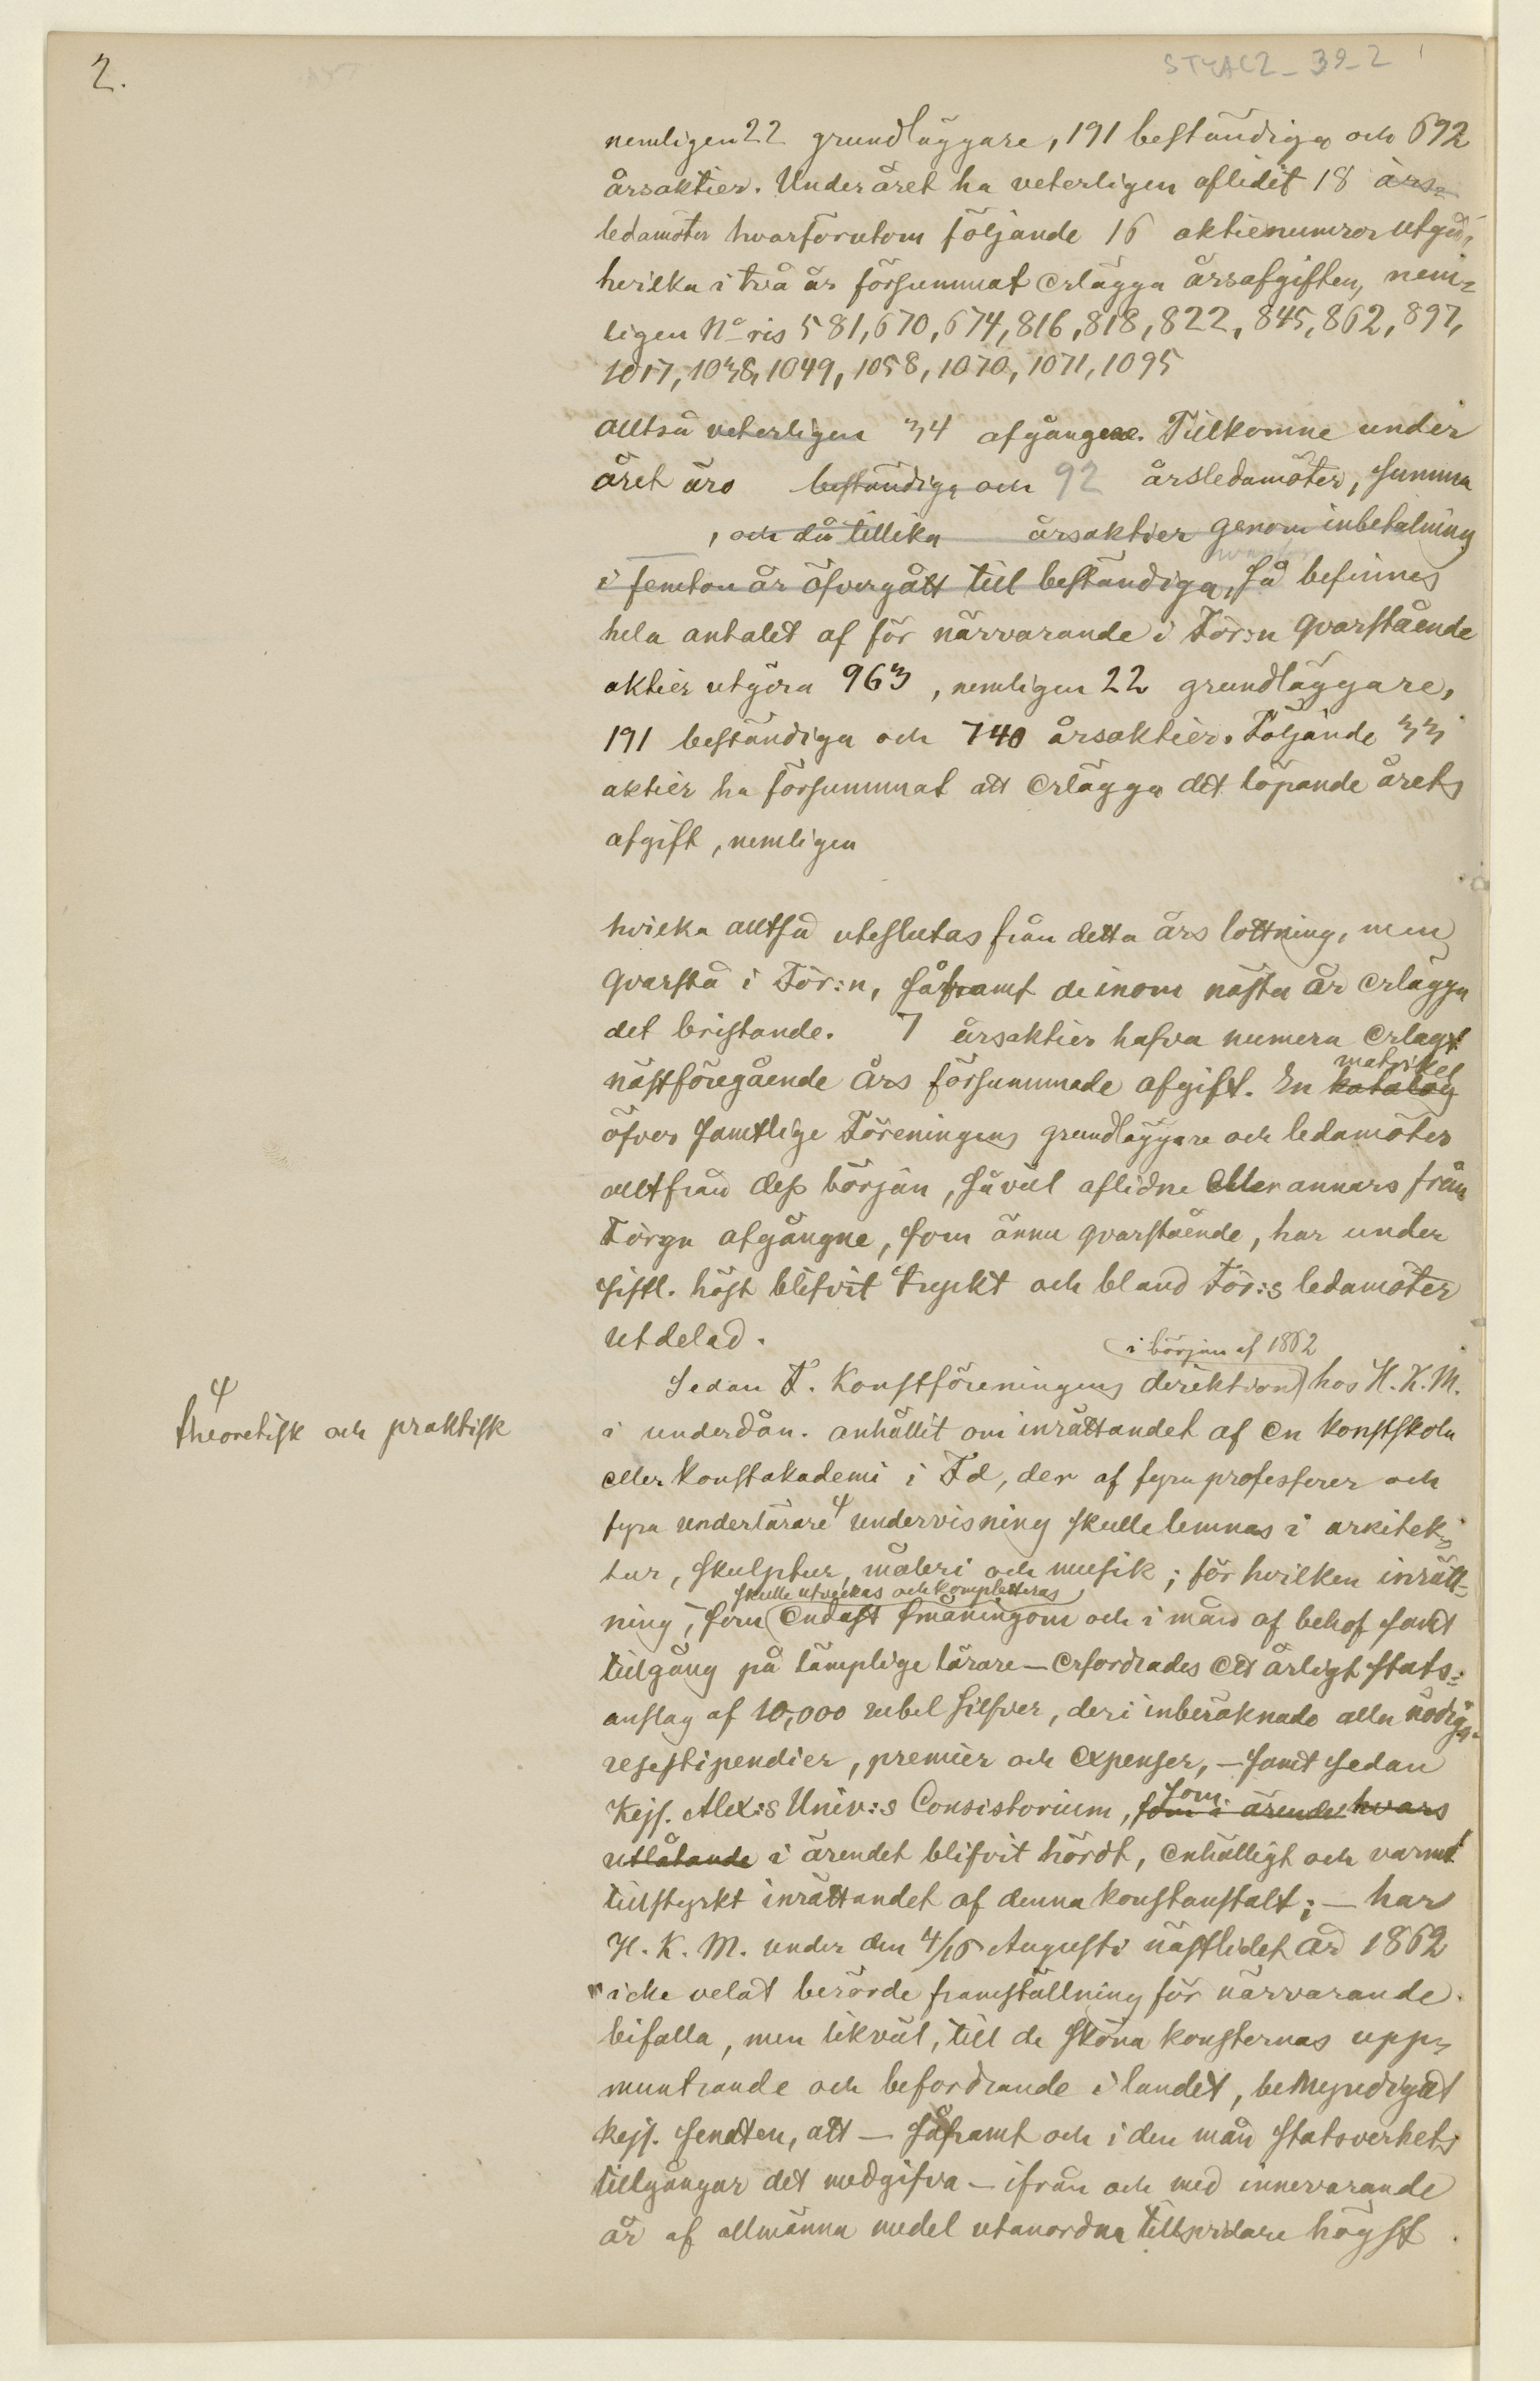 2.
STYAC2_39_2
nemligen 22 grundläggare, 191 beständiga och 692
årsaktier. Under året ha veterligen aflidit 18 års-
ledamöter hvarförutom följande 16 aktienumror utgå,
hvilka i två år försummat erlägga årsafgiften, nem-
ligen No ris 581, 670, 674, 816, 818, 822, 845, 862, 897,
1017, 1038, 1049, 1058, 1070, 1071, 1095
alltså veterligen 34 afgångne. Tillkomne under
året äro beständiga och 92 årsledamöter, summa
, och då tillika årsaktier genom inbetalning
i femton år öfvergått till beständiga, så befinnes
hela antalet af för närvarande i För:n qvarstående
aktier utgöra 963, nemligen 22 grundläggare,
191 beständiga och 740 årsaktier. Följande 33
aktier ha försummat att erlägga det löpande årets
afgift, nemligen
hvilka alltså uteslutas från detta års lottning, men
qvarstå i För:n, såframt de inom nästa år erlägga
det bristande. 7 årsaktier hafva numera erlagt
matrikel
nästföregående års försummade afgift. En katalog
öfver samtlige Föreningens grundläggare och ledamöter
alltfrån dess början, såväl aflidne eller annars från
För:n afgångne, som ännu qvarstående, har under
sistl. höst blifvit tryckt och bland För:s ledamöter
utdelad.
i början af 1862
Sedan F. Konstföreningens direktion hos H. K. M.
theoretisk och praktisk
i underdån. anhållit om inrättandet af en konstskola
eller konstakademi i Fd, der af fyra professorer och
fyra underlärare undervisning skulle lemnas i arkitek-
tur, skulptur, måleri och musik; för hvilken inrätt-
skulle utveckas och kompletteras
ning, som endast småningom och i mån af behof samt
tillgång på lämplige lärare — erfordrades ett årligt stats-
anslag af 10,000 rubel silfver, deri inberäknade alla nödiga
resestipendier, premier och expenser, — samt sedan
som
Kejs. Alex:s Univ:s Consistorium, som i ärendet hvars
utlåtande i ärendet blifvit hördt, enhälligt och varmt
tillstyrkt inrättandet af denna konstanstalt; — har
H. K. M. under den 4/16 Augusti nästlidet år 1862
icke velat berörde framställning för närvarande
bifalla, men likväl, till de sköna konsternas upp-
muntrande och befordrande i landet, bemyndigat
kejs. senaten, att — såframt och i den mån statsverkets
tillgångar det medgifva — ifrån och med innevarande
år af allmänna medel utanordna tillsvidare högst